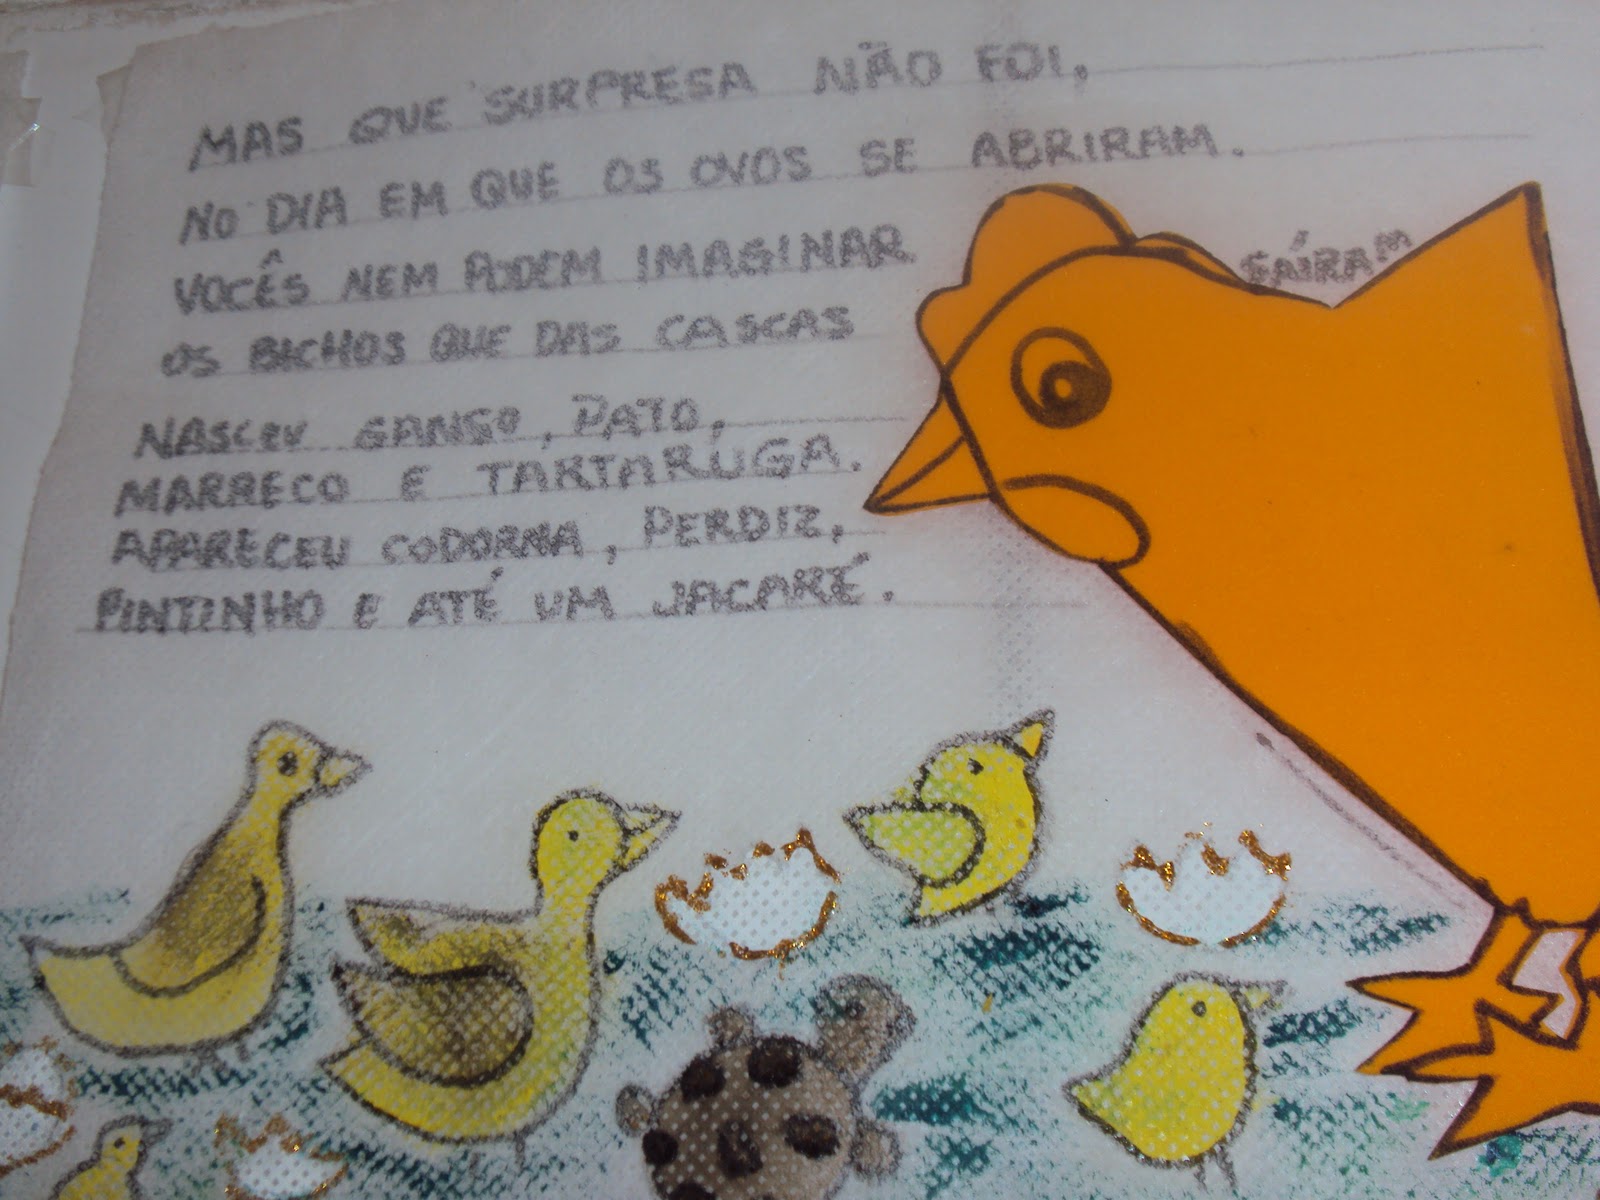 MAS QUE SURPRESA NÃO FOI,
NO DIA EM QUE OS OVOS SE ABRIRAM.
VOCÊS NEM PODEM IMAGINAR
OS BICHOS QUE DAS CASCAS SAÍRAM
NASCEU GANSO, PATO,
MARRECO E TARTARUGA.
APARECEU CODORNA, PERDIZ,
PINTINHO E ATÉ UM JACARÉ.